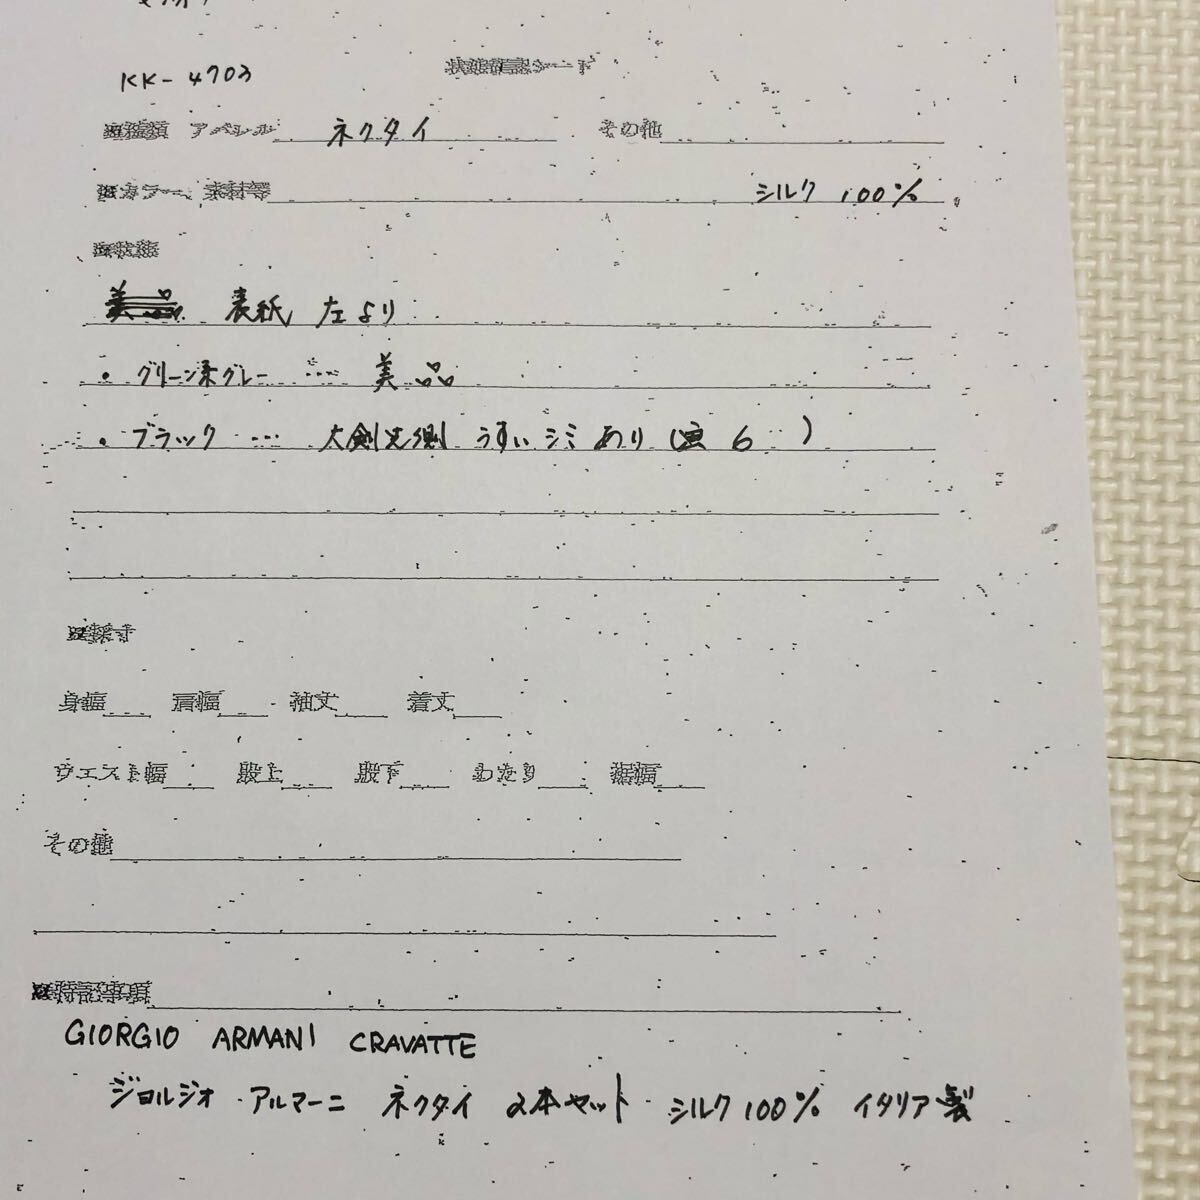 KK-4703
状態確認シート
※種類 アパレル ネクタイ その他
※カラー、素材等 シルク 100%
※状態
美品 表紙 左より
・グリーン系グレー … 美品
・ブラック … 大剣先側 うすいシミあり (画 6 )
※採寸
身幅 肩幅 袖丈 着丈
ウエスト幅 股上 股下 わたり 裾幅
その他
※特記事項
GIORGIO ARMANI CRAVATTE
ジョルジオ・アルマーニ ネクタイ 2本セット シルク100% イタリア製